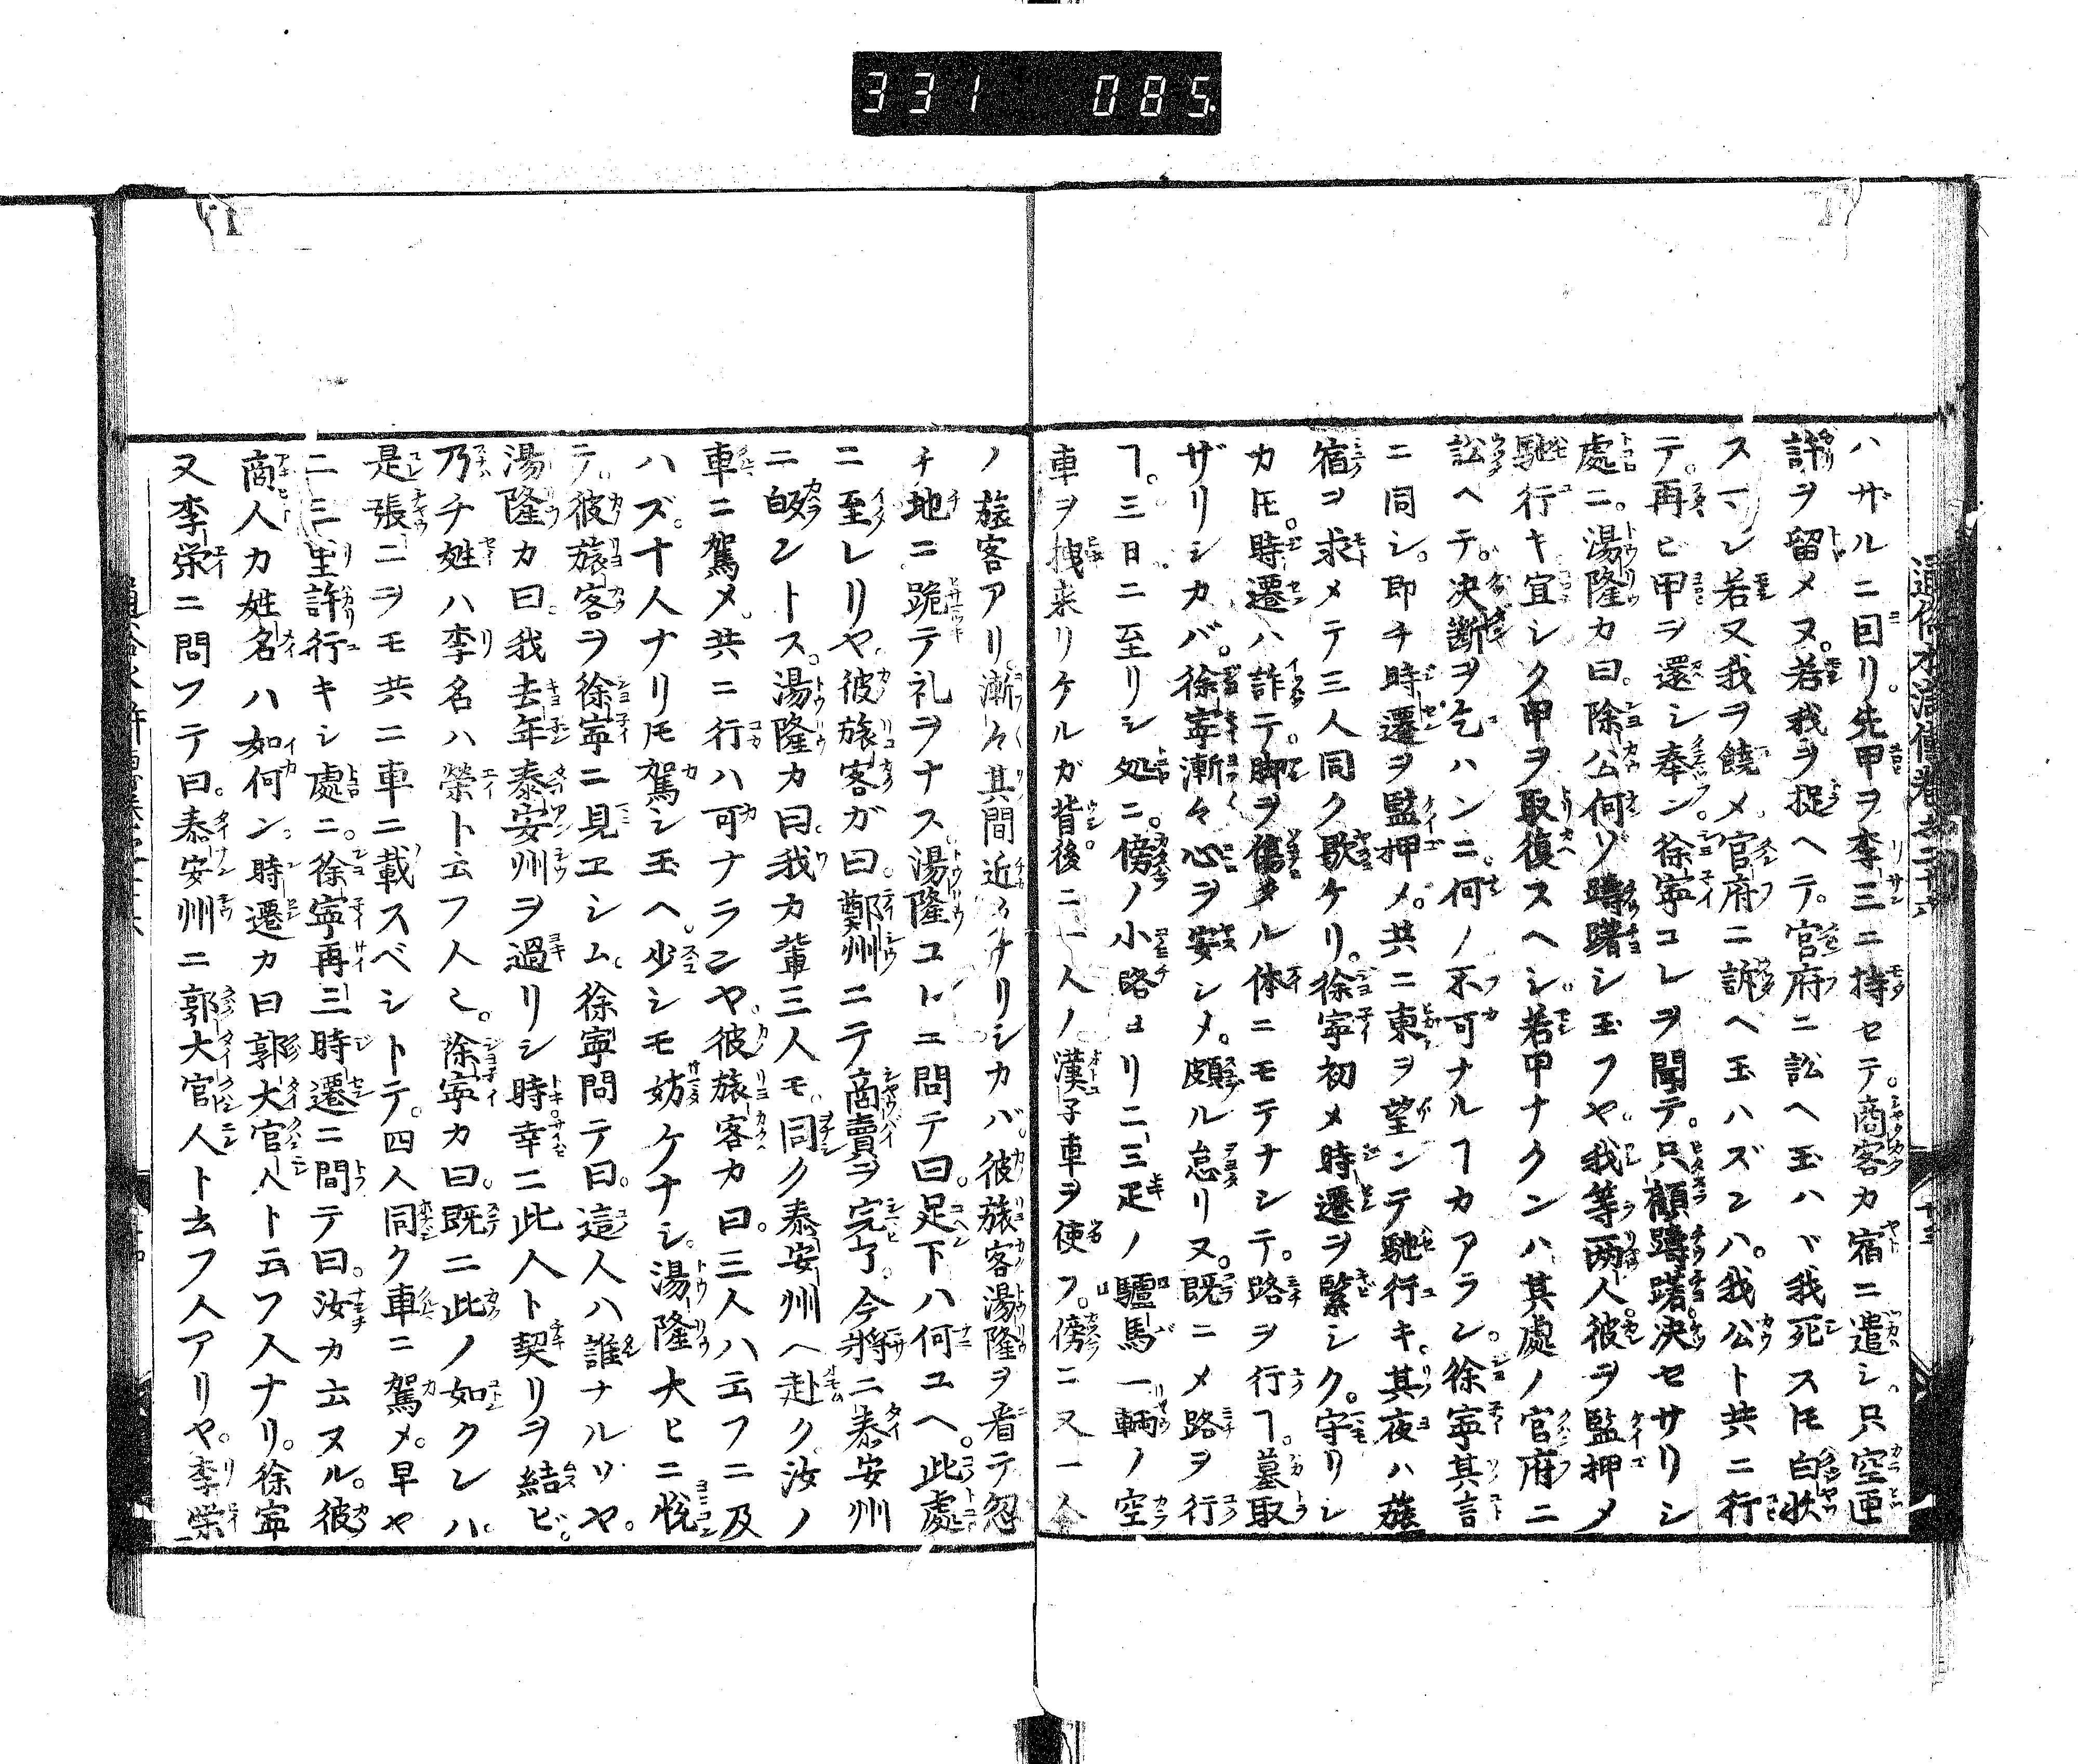 331 085
ハザルニ因リ。先甲ヲ李三ニ持セテ。商客カ宿ニ遣シ。只空匣
許ヲ留メヌ。若我ヲ捉ヘテ。官府ニ訟ヘ玉ハヾ我死ス𪜈白状
スマシ若又我ヲ饒メ。官府ニ訴ヘ玉ハズンハ。我公ト共ニ行
テ。再ビ甲ヲ還シ奉ン。徐寧コレヲ聞テ。只顧躊躇决セサリシ
處ニ。湯隆カ曰。除公何ゾ躊躇シ玉フヤ。我等两人彼ヲ監押メ
馳行キ宜シク甲ヲ取復スヘシ。若甲ナクンハ其處ノ官府ニ
訟ヘテ。决断ヲ乞ハンニ。何ノ不可ナルヿカアラン。徐寧其言
ニ同シ。即チ時遷ヲ監押メ。共ニ東ヲ望ンテ馳行キ。其夜ハ旅
宿ヲ求メテ三人同ク歇ケリ。徐寧初メ時遷ヲ緊シク。守リシ
カ𪜈。時遷ハ詐テ。脚ヲ傷タル体ニモテナシテ。路ヲ行ヿ。墓取
ザリシカバ。徐寧漸々心ヲ安シメ。頗ル怠リヌ。既ニメ路ヲ行
ヿ。三日ニ至リシ処ニ。傍ノ小路ヨリ二三疋ノ驢馬一輌ノ空
車ヲ拽来リケルガ背後ニ一人ノ漢子車ヲ使フ。傍ニ又一人
ノ旅客アリ。漸々其間近クナリシカバ。彼旅客湯隆ヲ看テ忽
チ地ニ跪テ礼ヲナス。湯隆コトニ問テ曰。足下ハ何ユヘ。此處
ニ至レリヤ。彼旅客ガ曰。鄭州ニテ商賣ヲ完了。今将ニ泰安州
ニ皈ントス。湯隆カ曰。我カ輩三人モ。同ク泰安州ヘ赴ク。汝ノ
車ニ駕メ。共ニ行ハ可ナランヤ。彼旅客カ曰。三人ハ云フニ及
ハズ。十人ナリ𪜈駕シ玉ヘ。少シモ妨ケナシ。湯隆大ヒニ悦
テ。彼旅客ヲ徐寧ニ見ヱシム。徐寧問テ曰。這人ハ誰ナルリヤ。
湯隆カ曰。我去年泰安州ヲ過リシ時幸ニ此人ト契リヲ結ビ。
乃チ姓ハ李名ハ榮ト云フ人ミ。除寧カ曰。既ニ此ノ如クンハ。
是張ニヲモ共ニ車ニ載スベシトテ。四人同ク車ニ駕メ。早ヤ
二三里許行キシ處ニ。徐寧再三時遷ニ問テ曰。汝カ云ヌル。彼
商人カ姓名ハ如何ン。時遷カ曰郭大官人ト云フ人ナリ。徐寧
又李栄ニ問フテ曰。泰安州ニ郭大官人ト云フ人アリヤ。李栄